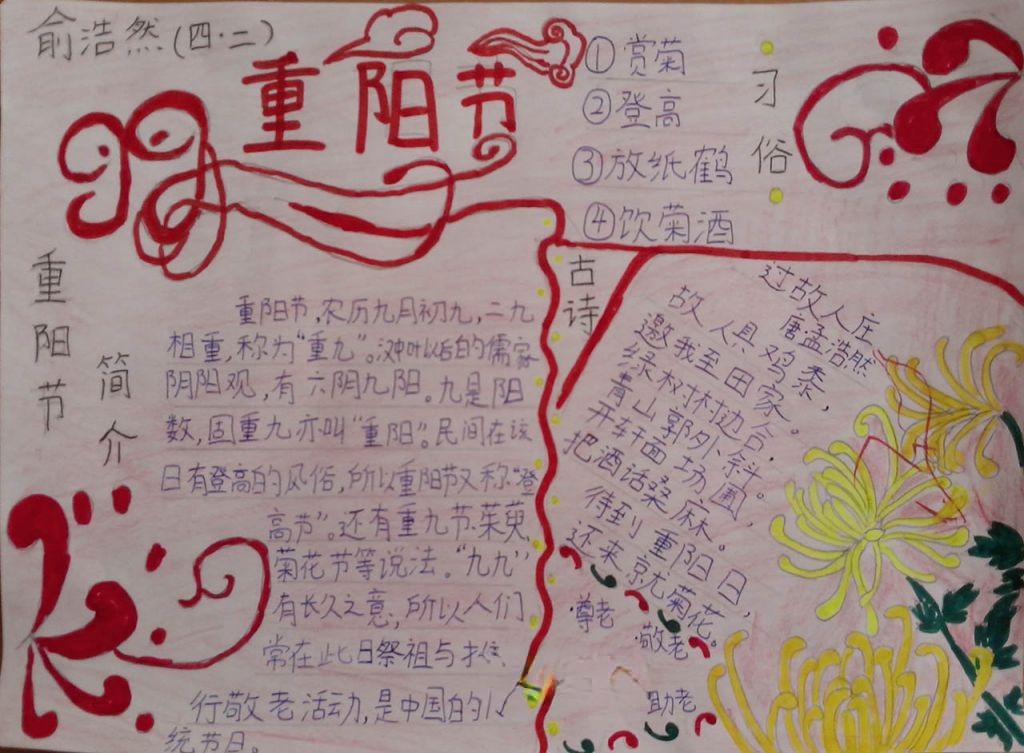 俞浩然(四·二)
重阳节
①赏菊
②登高
③放纸鹤
④饮菊酒
习俗
重阳节
简介
重阳节,农历九月初九,二九
相重,称为“重九”。汉中叶以后的儒家
阴阳观,有六阴九阳。九是阳
数,固重九亦叫“重阳”。民间在该
日有登高的风俗,所以重阳节又称“登
高节”。还有重九节、茱萸、
菊花节等说法。“九九”
有长久之意,所以人们
常在此日祭祖与推
行敬老活动,是中国的
统节日。
古诗
过故人庄
唐孟浩然
故人具鸡黍,
邀我至田家。
绿树村边合,
青山郭外斜。
开轩面场圃,
把酒话桑麻。
待到重阳日,
还来就菊花。
尊老
敬老
助老